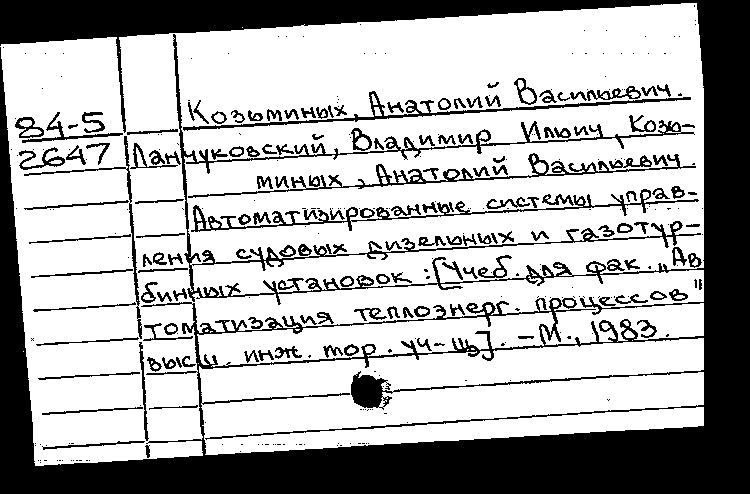 Козьминых, Анатолий Васильевич.
84-5
2647 Ланчуковский, Владимир Ильич, Козь-
миных, Анатолий Васильевич.
Автоматизированные системы управ-
ления судовых дизельных и газотур-
бинных установок : [Учеб. для фак. „Ав
томатизация теплоэнерг. процессов"
высш. инж. мор. уч-щ]. – М., 1983.